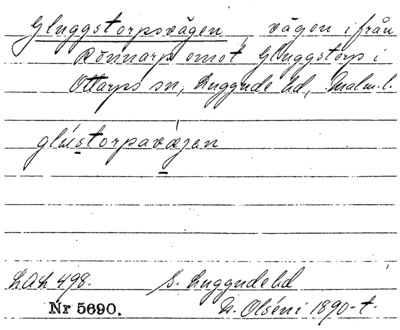 Glyggstorpsvägen, vägen ifrån
Rönnarp emot Glyggstorp i
Ottarps sn, Luggude hd, Malm. l.
glústorpavæjen
LAL 498. S. Luggude hd
Nr 5690. N. Olséni 1890-t.